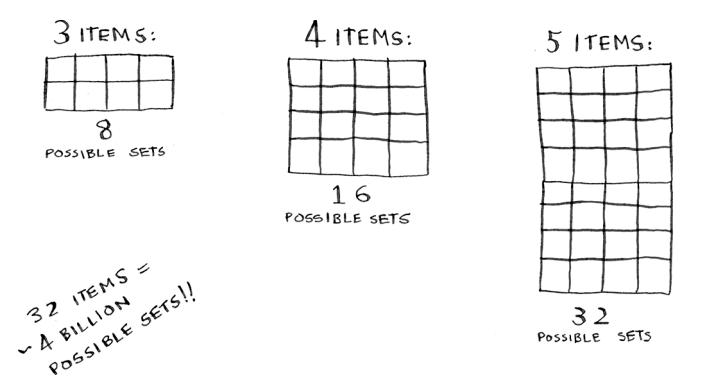 3 ITEMS:
8
POSSIBLE SETS
4 ITEMS:
16
POSSIBLE SETS
5 ITEMS:
32
POSSIBLE SETS
32 ITEMS =
~4 BILLION
POSSIBLE SETS!!